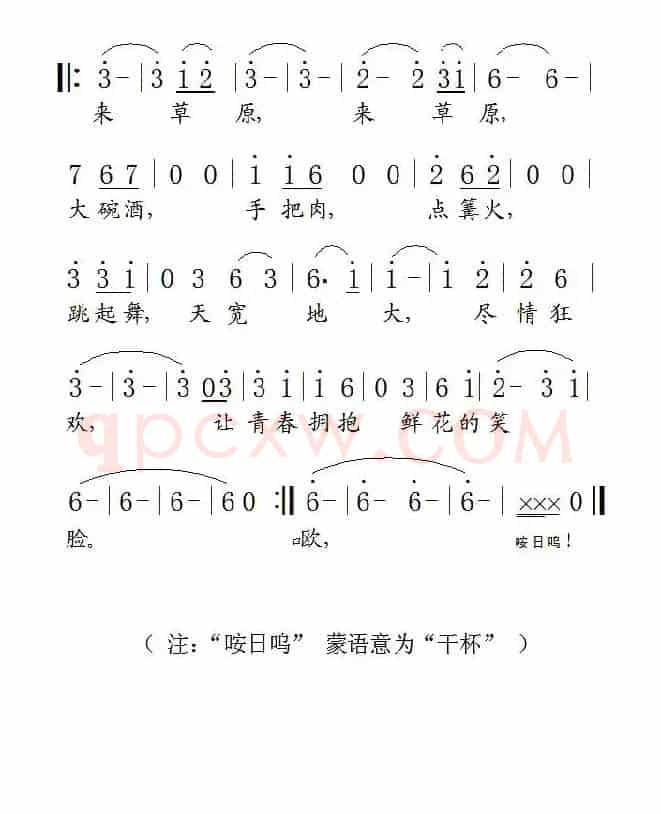 ‖: 3̇ - | 3̇ 1̇ 2̇ | 3̇ - | 3̇ - | 2̇ - 2̇ | 3̇ 1̇ | 6 - 6 - |
来 草 原, 来 草 原,
7 6 7 | 0 0 | 1̇ 1̇ 6 0 0 | 2̇ 6 2̇ | 0 0 |
大碗酒, 手把肉, 点篝火,
3̇ 3̇ 1̇ | 0 3 6 3 | 6· 1̇ | 1̇ - | 1̇ 2̇ | 2̇ 6 |
跳起舞, 天宽 地 大, 尽情狂
3̇ - | 3̇ - | 3̇ 0 3̇ | 3̇ 1̇ | 1̇ 6 | 0 3 | 6 1̇ | 2̇ - 3̇ 1̇ |
欢, 让青春拥抱 鲜花的笑
6 - | 6 - | 6 - | 6 0 :‖ 6̇ - | 6̇ - 6̇ - | 6̇ - | ××× 0 ‖
脸。 呕, 咹日呜!
( 注:“咹日呜” 蒙语意为“干杯” )
qpcxw.COM